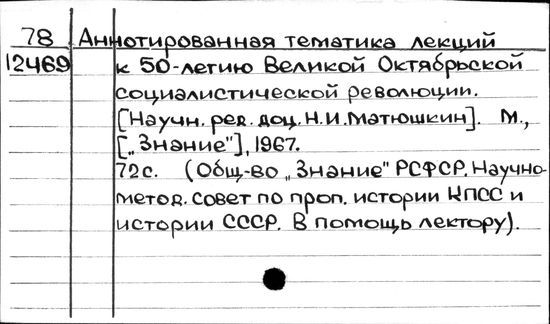 78 Аннотированная тематика лекций
12469 к 50-летию Великой Октябрьской
социалистической революции.
[Научн. ред. доц. Н.И. Матюшкин]. М.,
[„Знание"], 1967.
72с. (Общ-во „Знание" РСФСР. Научно-
метод. совет по проп. истории КПСС и
истории СССР. В помощь лектору).